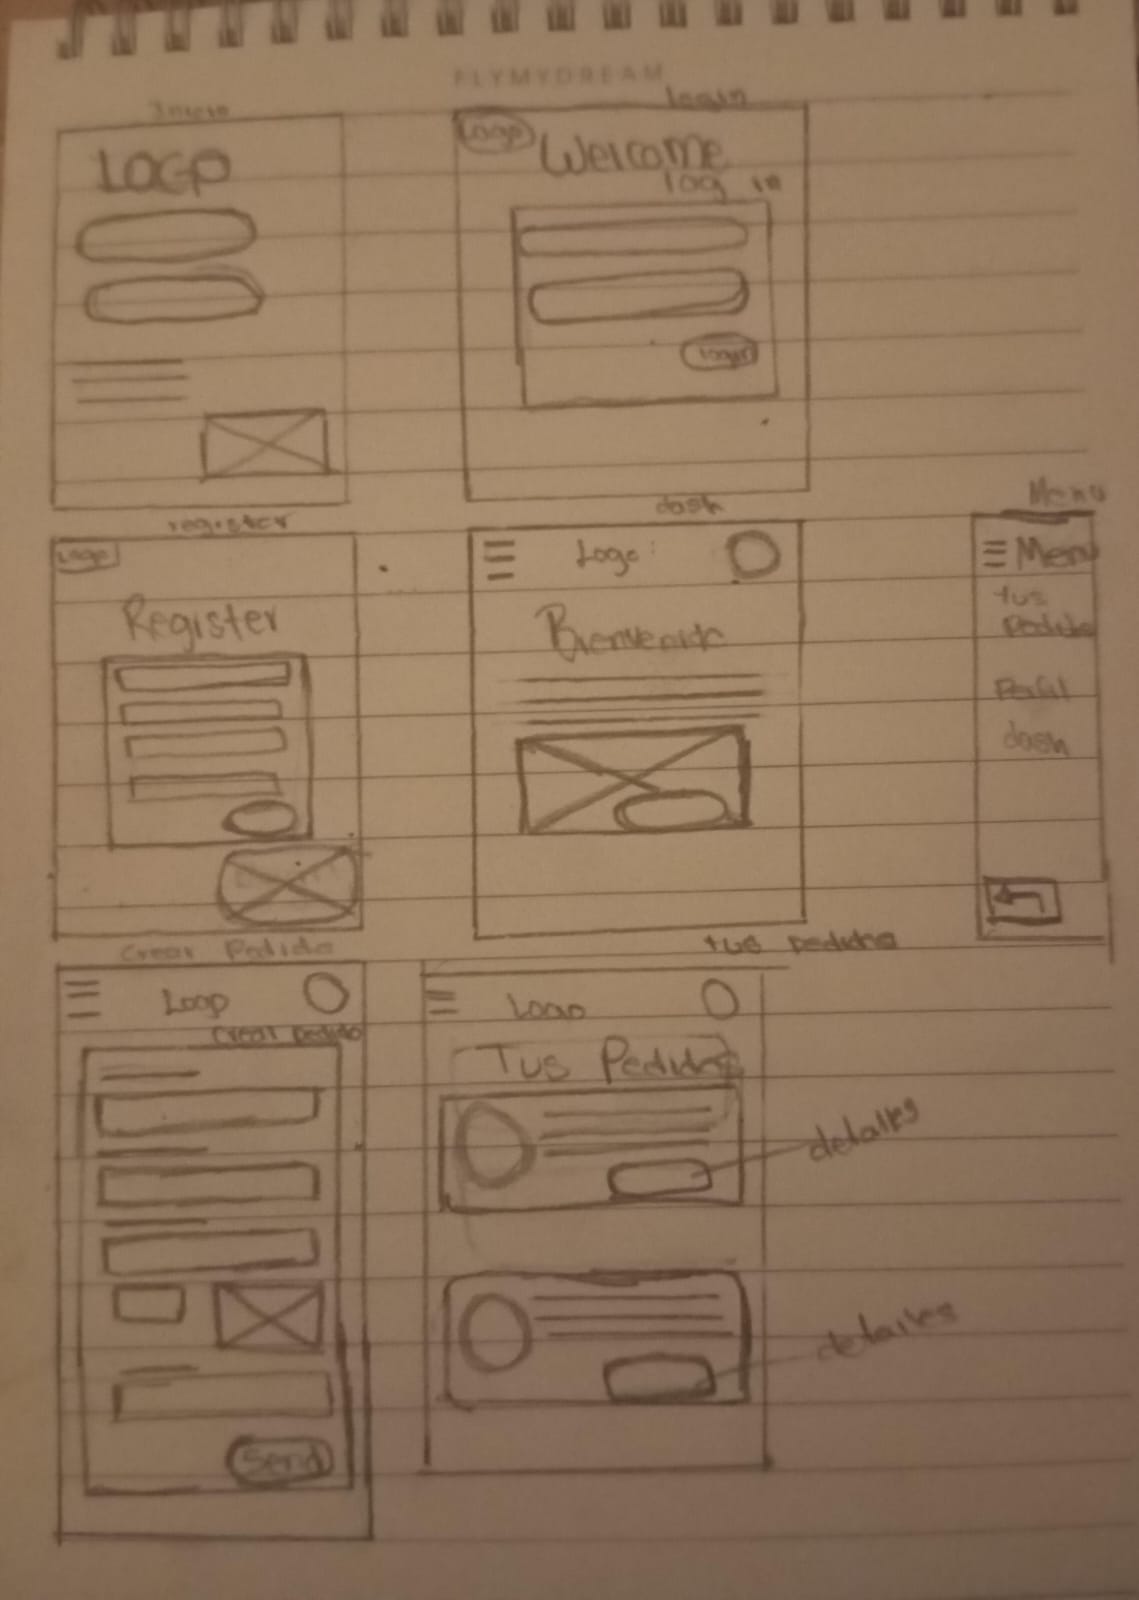 FLYMYDREAM
Inicio
LOGO
login
Logo
Welcome
log in
login
register
Logo
Register
dash
Logo
Bienvenido
Menu
Menu
tus
Pedidos
Perfil
dash
Crear Pedido
Logo
Crear pedido
Send
tus pedidos
Logo
Tus Pedidos
detalles
detalles